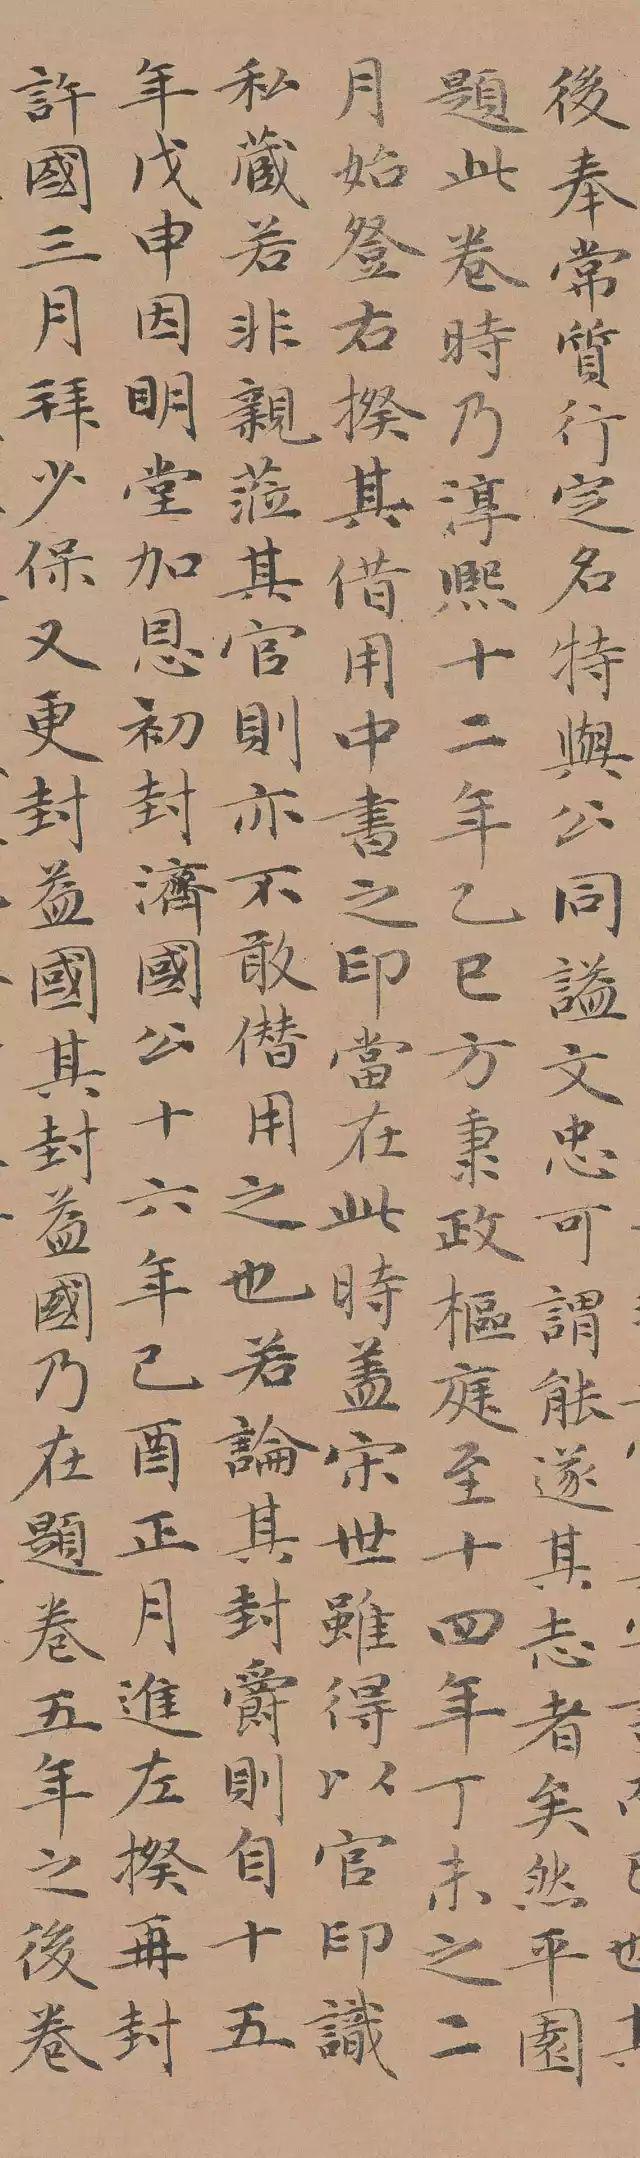 後奉常質行定名特與公同謚文忠可謂能遂其志者矣然平園
題此卷時乃淳熙十二年乙巳方秉政樞庭至十四年丁未之二
月始登右揆其借用中書之印當在此時蓋宋世雖得以官印識
私蔵若非親蒞其官則亦不敢僭用之也若論其封爵則自十五
年戊申因明堂加恩初封濟國公十六年己酉正月進左揆再封
許國三月拜少保又更封益國其封益國乃在題卷五年之後卷